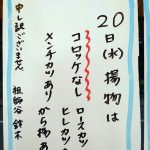 20日(水)揚物は
コロッケなし
ロースカツ
ヒレカツ
から揚あり
メンチカツあり
申し訳ございません。
祖師谷 鈴木